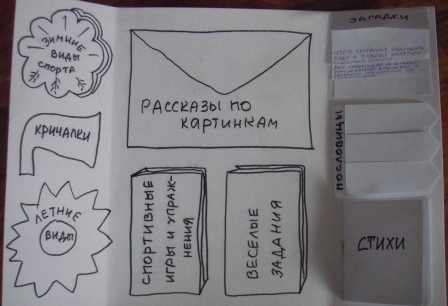 ЗИМНИЕ
ВИДЫ
СПОРТА
КРИЧАЛКИ
ЛЕТНИЕ
ВИДЫ
РАССКАЗЫ ПО
КАРТИНКАМ
СПОРТИВНЫЕ
ИГРЫ И УПРАЖ-
НЕНИЯ
ВЕСЕЛЫЕ
ЗАДАНИЯ
ЗАГАДКИ
ПОСЛОВИЦЫ
СТИХИ